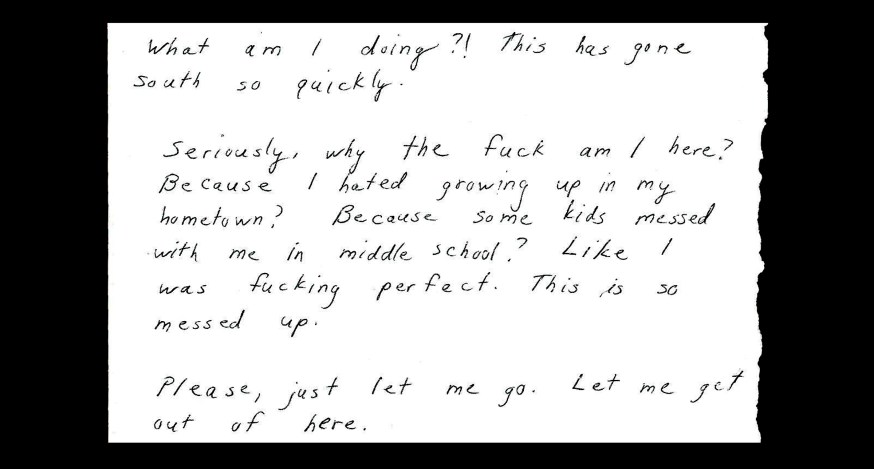 What am I doing?! This has gone
south so quickly.
Seriously, why the fuck am I here?
Because I hated growing up in my
hometown? Because some kids messed
with me in middle school? Like I
was fucking perfect. This is so
messed up.
Please, just let me go. Let me get
out of here.